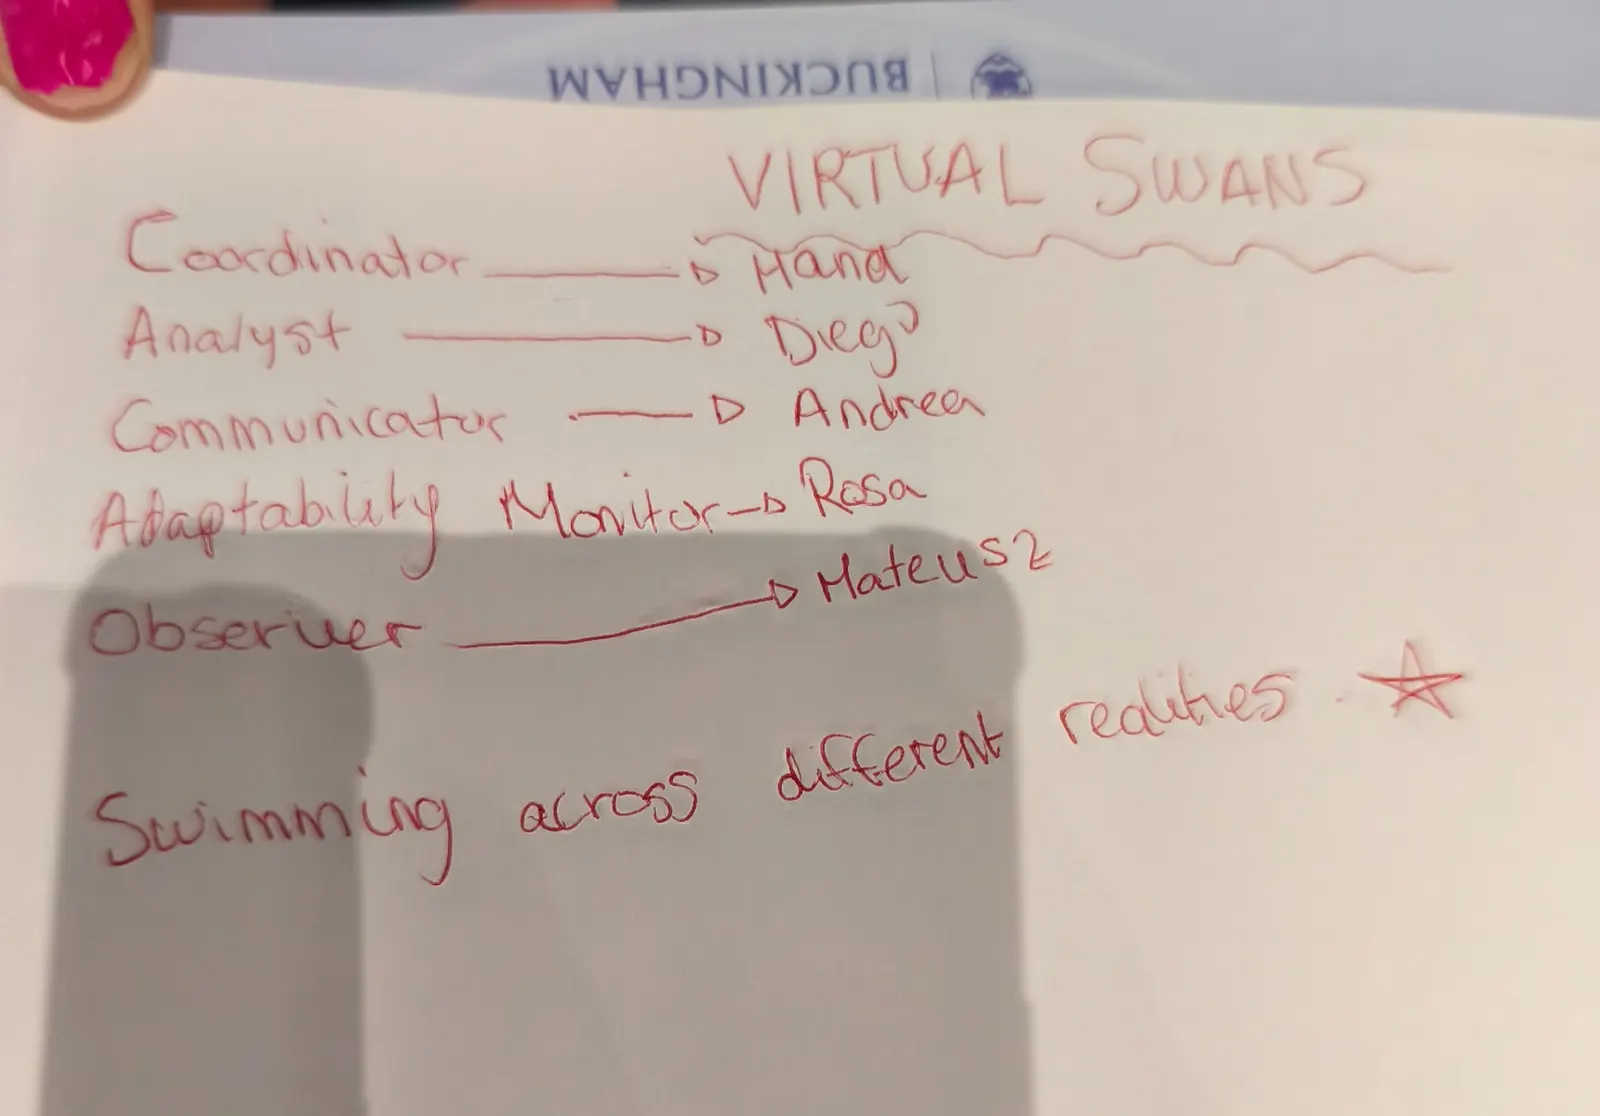 BUCKINGHAM
VIRTUAL SWANS
Coordinator → Hana
Analyst → Diego
Communicator → Andrea
Adaptability Monitor → Rosa
Observer → Mateusz
Swimming across different realities